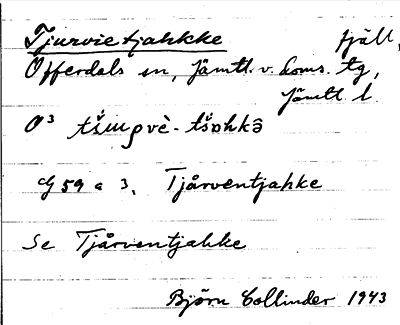 Tjurvietjahkke fjäll,
Offerdals sn, Jämtl. v. doms. tg,
Jämtl. l.
O³ tšɯρvè-tšɒhkə̂
G 59 a 3. Tjårventjahke
Se Tjårventjahke
Björn Collinder 1943